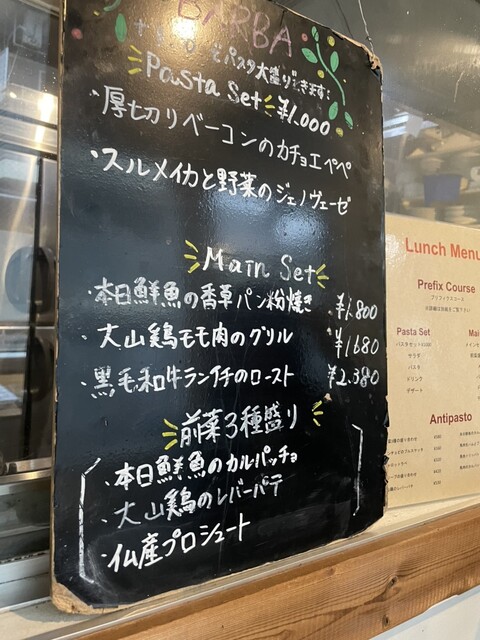 BARBA
でパスタ大盛りできます!
Pasta Set ¥1.000
・厚切りベーコンのカチョエペペ
・スルメイカと野菜のジェノヴェーゼ
Main Set
・本日鮮魚の香草パン粉焼き ¥1.800
・大山鶏モモ肉のグリル ¥1680
・黒毛和牛ランイチのロースト ¥2.380
前菜3種盛り
・本日鮮魚のカルパッチョ
・大山鶏のレバーパテ
・仏産プロシュート
Lunch Menu
Prefix Course
プリフィクスコース
Pasta Set
パスタセット¥1000
サラダ
パスタ
ドリンク
デザート
Antipasto